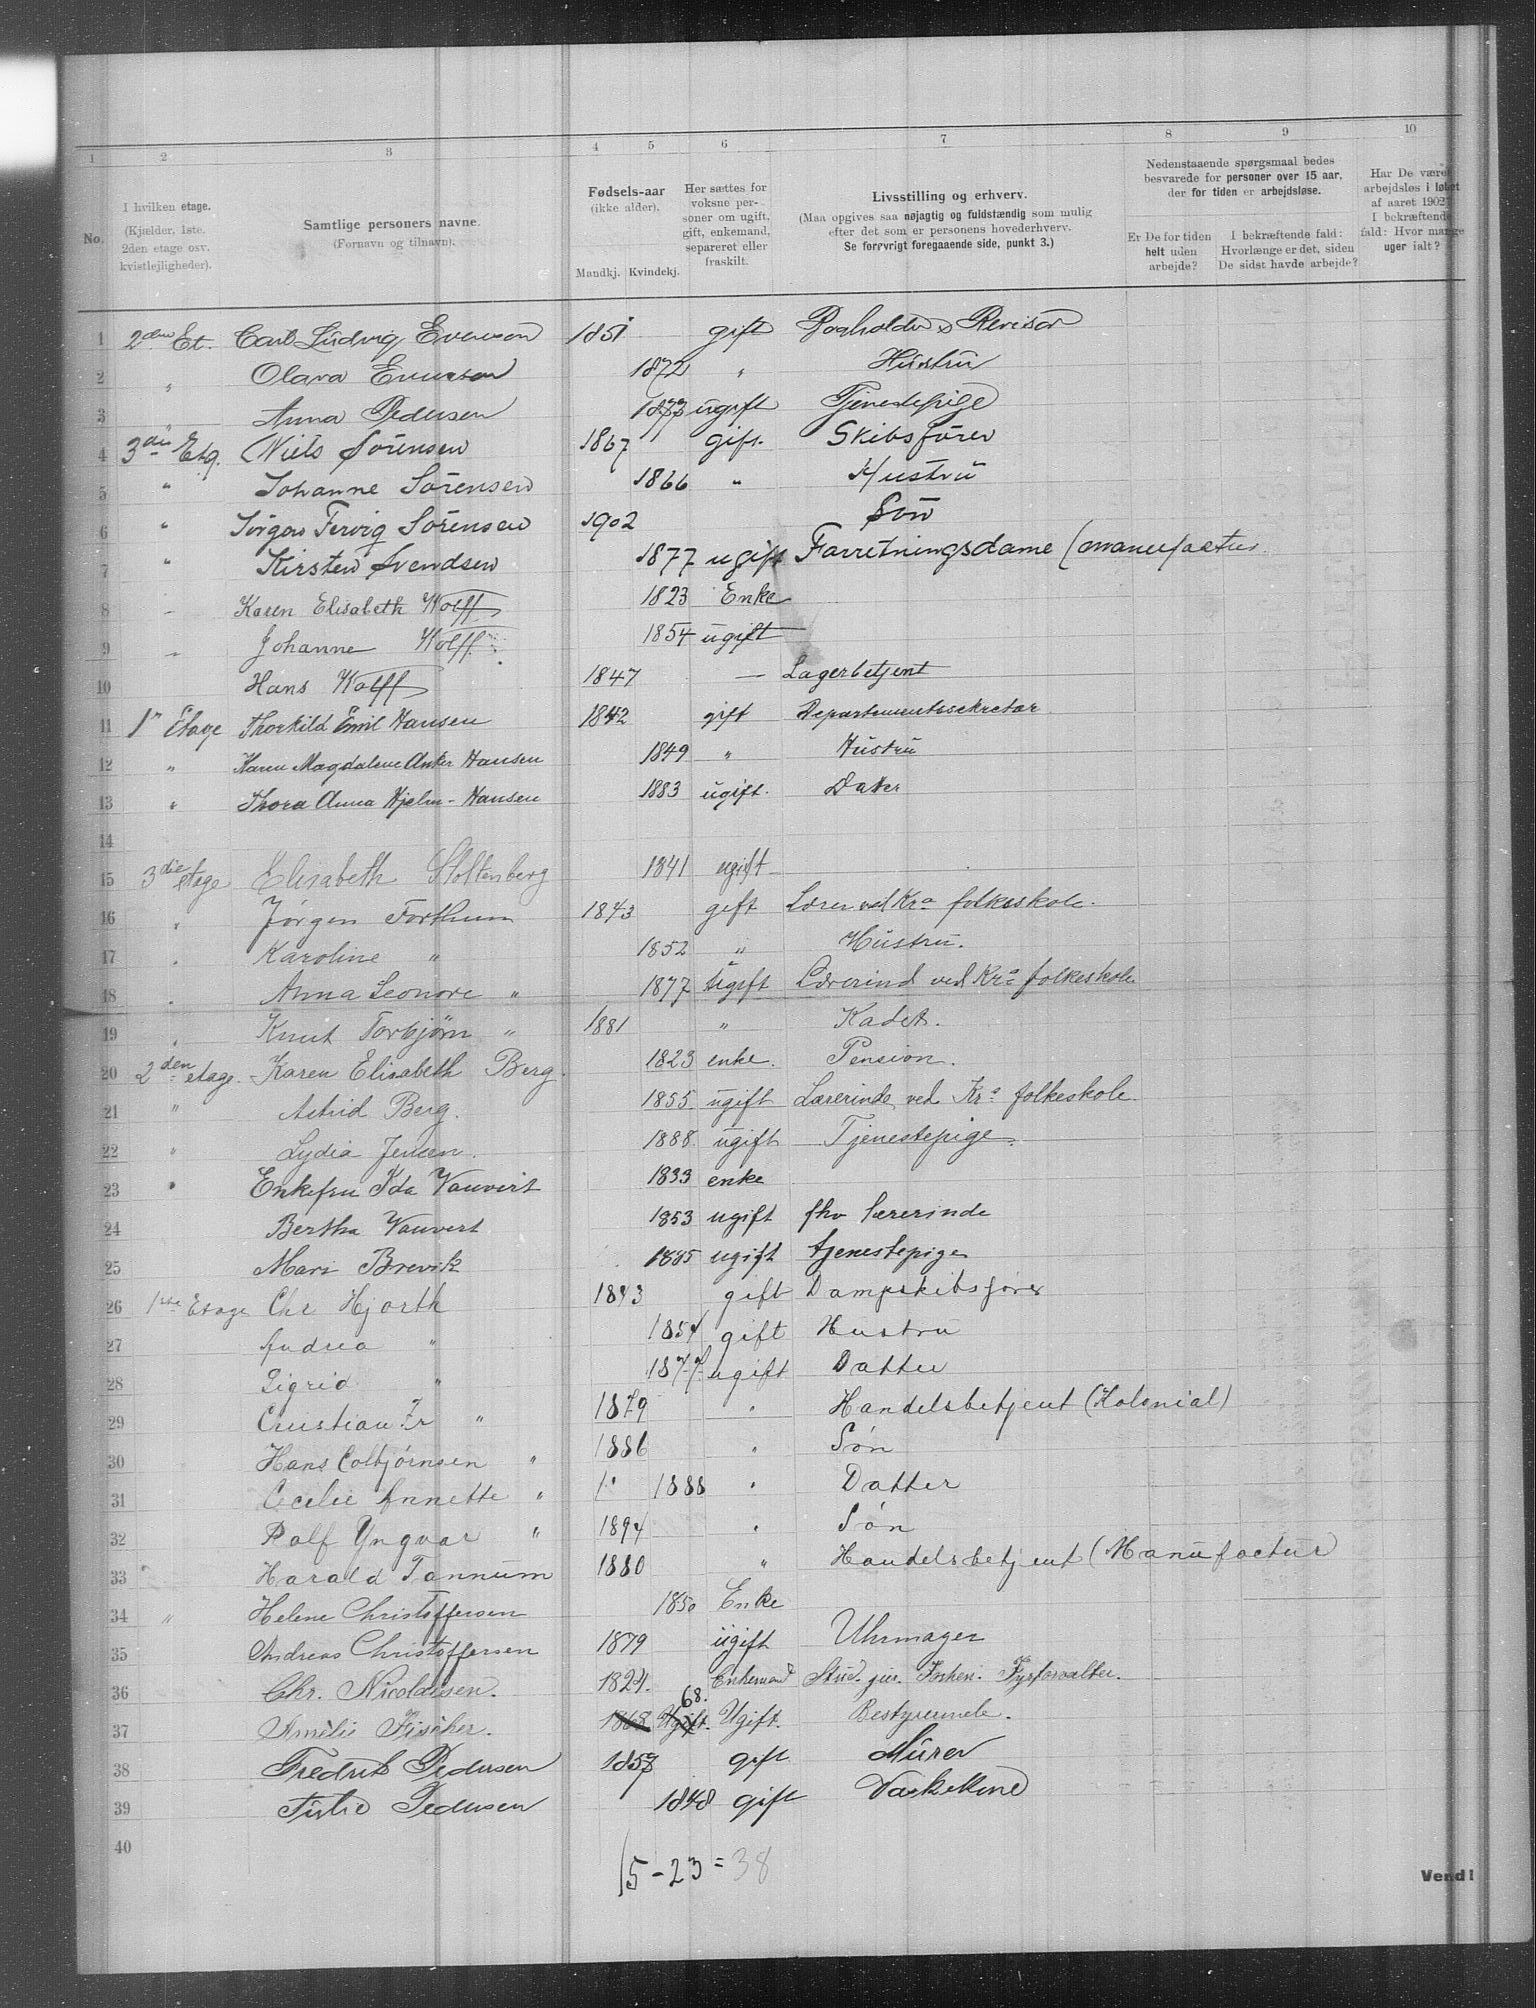 1 2 3 4 5 6 7 8 9 10
No.
I hvilken etage.
(Kjælder, 1ste.
2den etage osv.
kvistlejligheder).
Samtlige personers navne.
(Fornavn og tilnavn).
Fødsels-aar
(ikke alder).
Mandkj. Kvindekj.
Her sættes for
voksne per-
soner om ugift,
gift, enkemand,
separeret eller
fraskilt.
Livsstilling og erhverv.
(Maa opgives saa nøjagtig og fuldstændig som mulig
efter det som er personens hovederhverv.
Se forøvrigt foregaaende side, punkt 3.)
Nedenstaaende spørgsmaal bedes
besvarede for personer over 15 aar,
der for tiden er arbejdsløse.
Er De for tiden
helt uden
arbejde?
I bekræftende fald:
Hvorlænge er det, siden
De sidst havde arbejde?
Har De været
arbejdsløs i løbet
af aaret 1902?
I bekræftende
fald: Hvor mange
uger ialt?
1 2den Et. Carl Ludvig Evensen 1851 gift Bogholder & Revisor
2 " Olava Evensen 1872 " Hustru
3 Anna Pedersen 1877 ugift Tjenestepige
4 3die Etg. Niels Sörensen 1867 gift Skibsförer
5 " Johanne Sörensen 1866 " Hustru
6 " Jörgen Fervig Sörensen 1902 Sön
7 " Kirsten Svendsen 1877 ugift Forretningsdame (manufactur
8 - Karen Elisabeth Wolff 1823 Enke
9 " Johanne Wolff 1854 ugift
10 Hans Wolff 1847 — Lagerbetjent
11 1ste Etage Thorkild Emil Hansen 1842 gift Departementssekretær
12 " Karen Magdalene Anker Hansen 1849 " Hustru
13 " Thora Anna Hjelm-Hansen 1883 ugift. Datter
14
15 3die etage Elisabeth Stoltenberg 1841 ugift
16 " Jørgen Forthun 1843 gift Lærer ved Kra folkeskole.
17 " Karoline " 1852 " Hustru.
18 " Anna Leonore " 1877 Ugift Lærerind ved Kra folkeskole
19 " Knut Torbjörn " 1881 " Kadet.
20 2den etage. Karen Elisabeth Berg. 1823 enke. Pension.
21 " Astrid Berg. 1855 ugift Lærerinde ved Kra folkeskole
22 " Lydia Jensen. 1888 ugift Tjenestepige.
23 " Enkefru Ida Vauvert 1833 enke
24 Bertha Vauvert 1853 ugift fhv lærerinde
25 Mari Brevik 1885 ugift tjenestepige
26 1ste Etage Chr Hjorth 1843 gift Dampskibsfører
27 Andrea " 1854 gift Hustru
28 Sigrid " 1877 ugift Datter
29 Christian Fr " 1879 " Handelsbetjent (Kolonial)
30 Hans Colbjørnsen " 1886 " Søn
31 Cecilie Annette " 1888 " Datter
32 Rolf Yngvar " 1894 " Søn
33 Harald Tannum 1880 " Handelsbetjent (Manufactur
34 " Helene Christoffersen 1850 Enke
35 Andreas Christoffersen 1879 ugift Uhrmager
36 Chr. Nicolaisen. 1824. Enkemand Stud. jur. Fyrforvalter.
37 Amélie Fischer. 1868 Ugift. 68. Ugift. Bestyrerinde.
38 Fredrik Pedersen 1857 gift Mürer
39 Julie Pedersen 1848 gift Vaskekone
40
15 - 23 = 38
Vend!